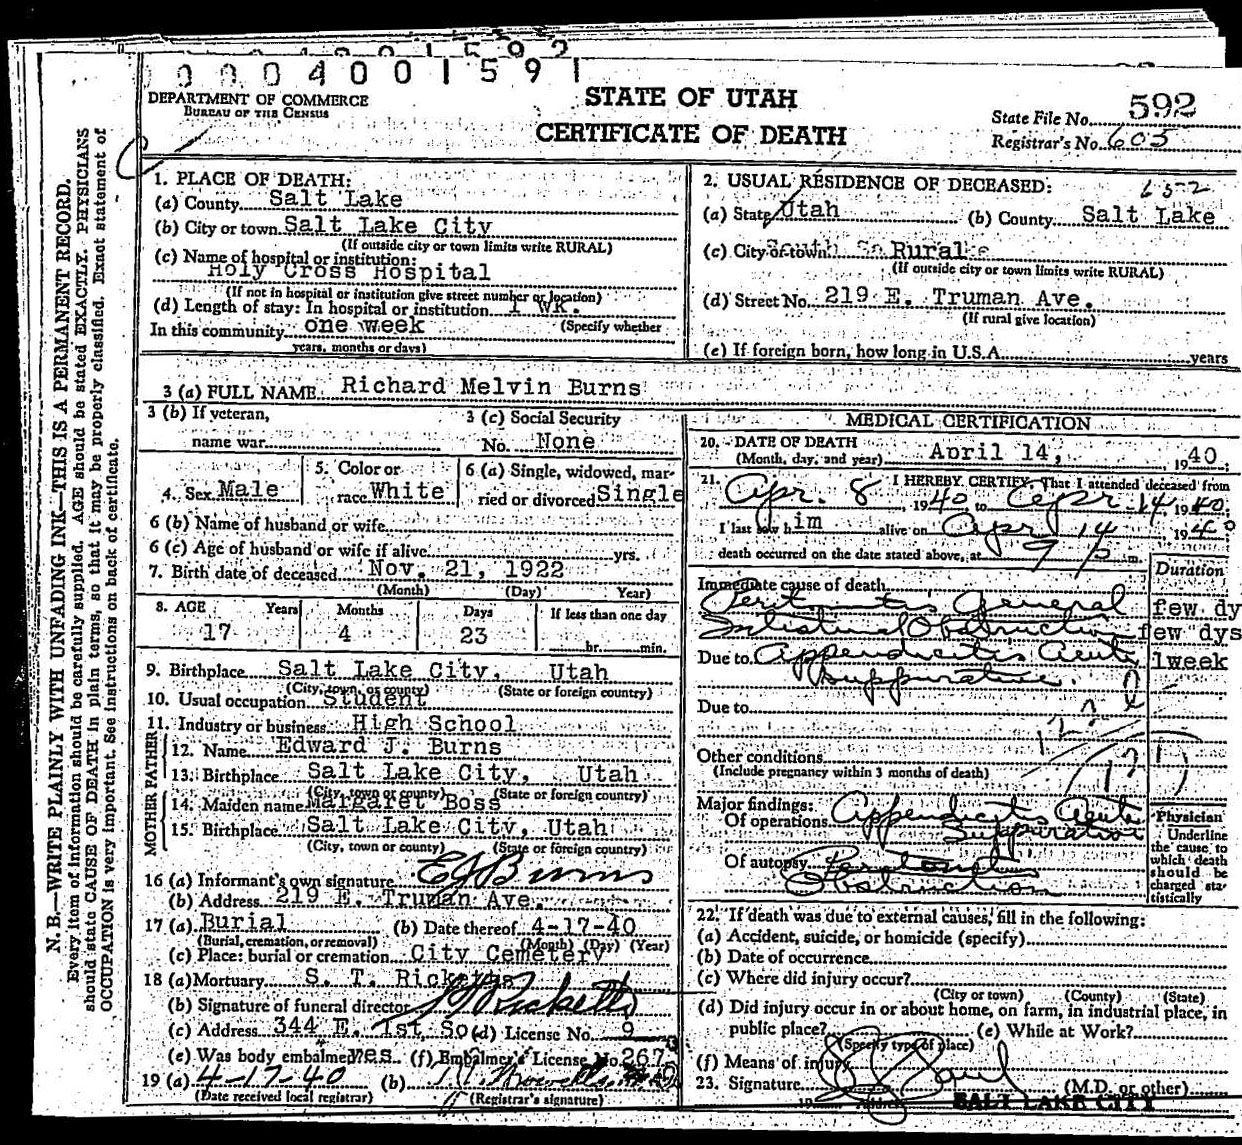 0 0 0 4 0 0 1 5 9 1
DEPARTMENT OF COMMERCE
BUREAU OF THE CENSUS
STATE OF UTAH
CERTIFICATE OF DEATH
State File No. 592
Registrar's No. 605
N. B.—WRITE PLAINLY WITH UNFADING INK—THIS IS A PERMANENT RECORD.
Every item of information should be carefully supplied. AGE should be stated EXACTLY. PHYSICIANS
should state CAUSE OF DEATH in plain terms, so that it may be properly classified. Exact statement of
OCCUPATION is very important. See instructions on back of certificate.
1. PLACE OF DEATH:
(a) County Salt Lake
(b) City or town Salt Lake City
(If outside city or town limits write RURAL)
(c) Name of hospital or institution:
Holy Cross Hospital
(If not in hospital or institution give street number or location)
(d) Length of stay: In hospital or institution 1 wk.
In this community one week (Specify whether
years, months or days)
2. USUAL RESIDENCE OF DECEASED: 652
(a) State Utah (b) County Salt Lake
(c) City or town Rural
(If outside city or town limits write RURAL)
(d) Street No. 219 E. Truman Ave.
(If rural give location)
(e) If foreign born, how long in U.S.A. years
3 (a) FULL NAME Richard Melvin Burns
3 (b) If veteran,
name war
3 (c) Social Security
No. None
4. Sex Male
5. Color or
race White
6 (a) Single, widowed, mar-
ried or divorced Single
6 (b) Name of husband or wife
6 (c) Age of husband or wife if alive yrs.
7. Birth date of deceased Nov. 21, 1922
(Month) (Day) Year)
8. AGE Years Months Days If less than one day
17 4 23 hr. min.
9. Birthplace Salt Lake City, Utah
(City, town, or county) (State or foreign country)
10. Usual occupation Student
11. Industry or business High School
FATHER
12. Name Edward J. Burns
13. Birthplace Salt Lake City, Utah
(City, town or county) (State or foreign country)
MOTHER
14. Maiden name Margaret Boss
15. Birthplace Salt Lake City, Utah
(City, town or county) (State or foreign country)
16 (a) Informant's own signature E J Burns
(b) Address 219 E. Truman Ave.
17 (a) Burial (b) Date thereof 4-17-40
(Burial, cremation, or removal) (Month) (Day) (Year)
(c) Place: burial or cremation City Cemetery
18 (a) Mortuary S. T. Ricketts
(b) Signature of funeral director Ricketts
(c) Address 344 E. 1st So. (d) License No. 9
(e) Was body embalmed yes (f) Embalmer's License No. 267
19 (a) 4-17-40 (b)
(Date received local registrar) (Registrar's signature)
MEDICAL CERTIFICATION
20. DATE OF DEATH
(Month, day, and year) April 14, 19 40
21. I HEREBY CERTIFY, That I attended deceased from
Apr. 8, 1940 to Apr 14 1940,
I last saw him alive on Apr 14 1940
death occurred on the date stated above, at 9 p m.
Duration
Immediate cause of death
Peritonitis General few dy
Intestinal Obstruction few dys
Due to Appendicitis Acute 1 week
Suppurative.
Due to
Other conditions
(Include pregnancy within 3 months of death)
121
Major findings:
Of operations Appendicitis Acute
Suppurative
Of autopsy Peritonitis
Obstruction
Physician
Underline
the cause to
which death
should be
charged sta-
tistically
22. If death was due to external causes, fill in the following:
(a) Accident, suicide, or homicide (specify)
(b) Date of occurrence
(c) Where did injury occur?
(City or town) (County) (State)
(d) Did injury occur in or about home, on farm, in industrial place, in
public place? (e) While at Work?
(Specify type of place)
(f) Means of injury
23. Signature (M.D. or other)
19 Address SALT LAKE CITY